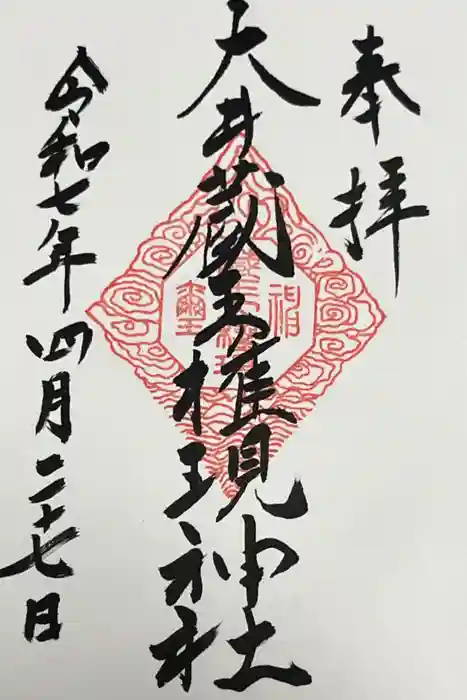 奉拝
大井蔵王権現神社
令和七年四月二十七日